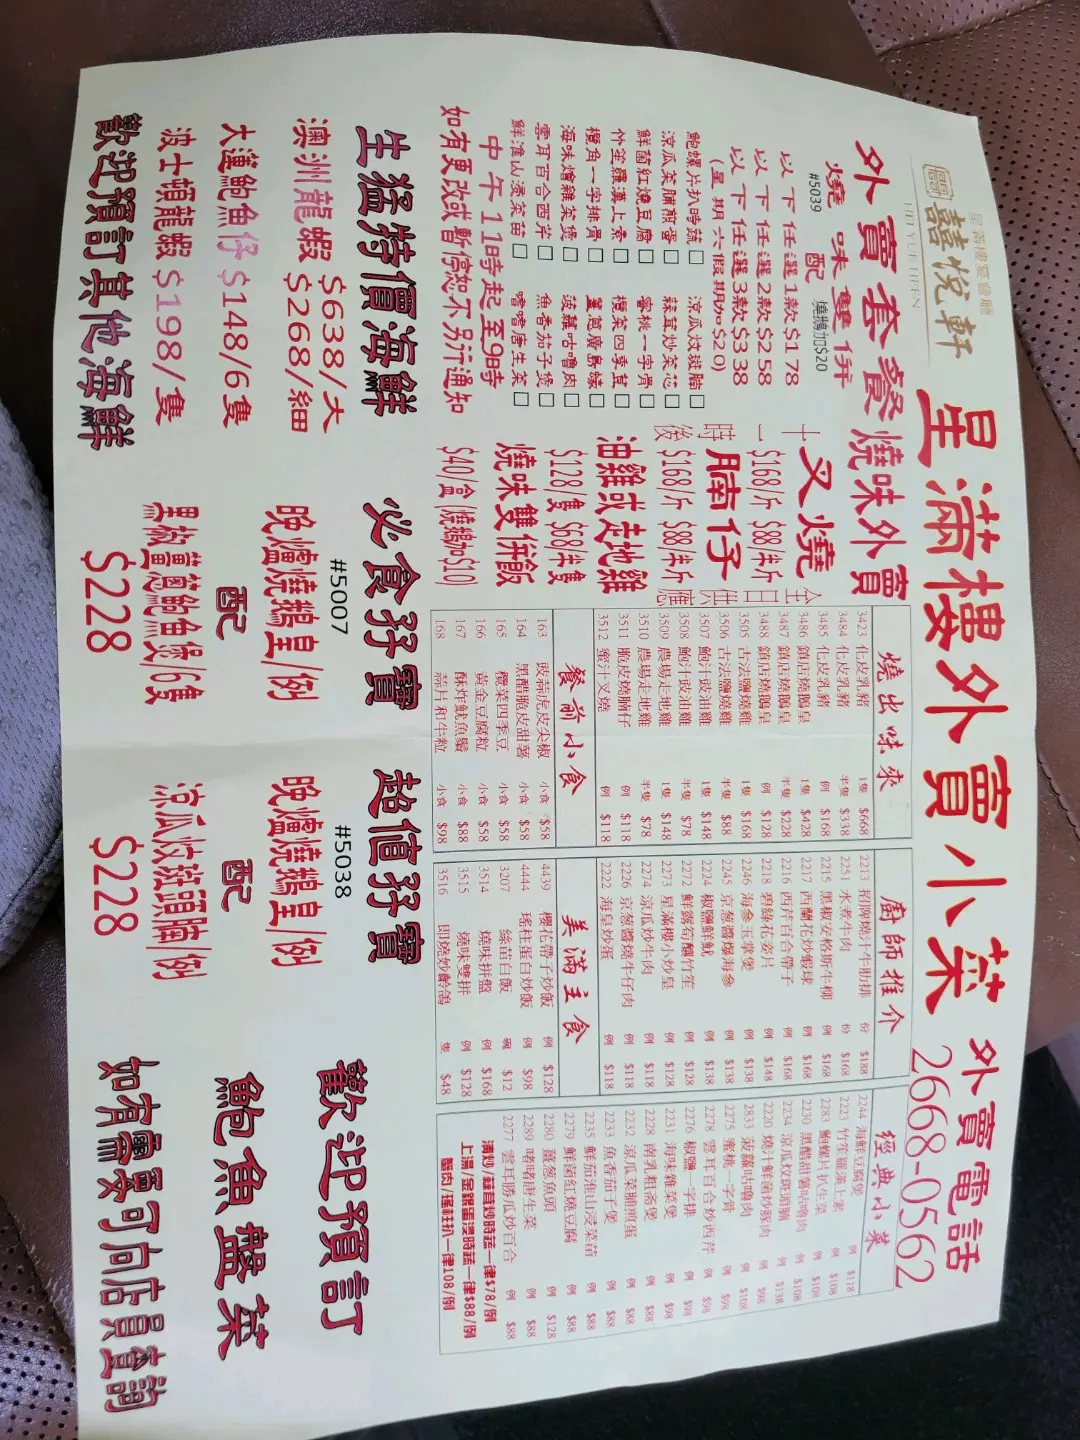 星滿樓宴會廳
囍悅軒
HEI YUE HEEN
星滿樓外賣小菜
外賣電話
2668-0562
外賣套餐
燒味雙拼
#5039
配 燒鵝加$20
以下任選1款$178
以下任選2款$258
以下任選3款$338
(星期六假期加$20)
鮑螺片扒時蔬□ 涼瓜炆斑腩□
涼瓜菜脯煎蛋□ 蒜茸炒菜芯□
鮮菌紅燒豆腐□ 蜜桃一字骨□
竹笙羅漢上素□ 欖菜四季豆□
欖角一字排骨□
海味燴雜菜煲□ 菠蘿咕嚕肉□
雲耳百合西芹□ 魚香茄子煲□
鮮淮山浸菜苗□ 啫啫唐生菜□
中午11時起至9時
如有更改或暫停恕不另行通知
燒味外賣
叉燒
$168/斤 $88/半斤
腩仔
$168/斤 $88/半斤
十一時後
全日供應
油雞或走地雞
$128/隻 $68/半隻
燒味雙併飯
$40/盒(燒鵝加$10)
燒出味來
3423 化皮乳豬 1隻 $668
3484 化皮乳豬 半隻 $338
3485 化皮乳豬 例 $168
3486 鎮店燒鵝皇 1隻 $428
3487 鎮店燒鵝皇 半隻 $228
3488 鎮店燒鵝皇 例 $128
3505 古法鹽燒雞 1隻 $168
3506 古法鹽燒雞 半隻 $88
3507 鮑汁豉油雞 1隻 $148
3508 鮑汁豉油雞 半隻 $78
3509 農場走地雞 1隻 $148
3510 農場走地雞 半隻 $78
3511 脆皮燒腩仔 例 $118
3512 蜜汁叉燒 例 $118
餐前小食
163 豉蒜虎皮尖椒 小食 $58
164 黑醋脆皮甜薯 小食 $58
165 欖菜四季豆 小食 $58
166 黃金豆腐粒 小食 $58
167 酥炸魷魚鬚 小食 $88
168 蒜片和牛粒 小食 $98
廚師推介
2213 招牌燒汁牛肋排 份 $188
2251 水煮牛肉 份 $168
2215 黑椒安格斯牛柳 例 $168
2217 西蘭花炒蝦球 例 $168
2216 西芹百合帶子 例 $168
2218 碧綠花姿片 例 $148
2246 海參玉掌煲 例 $138
2245 京葱醬爆海參 例 $138
2224 椒鹽鮮魷 例 $138
2272 鮮露筍釀竹笙 例 $128
2273 星滿樓小炒皇 例 $128
2274 涼瓜炒牛肉 例 $118
2226 京葱醬燒牛仔肉 例 $118
2222 海皇炒蛋 例 $118
美滿主食
4439 櫻花帶子炒飯 例 $128
4444 瑤柱蛋白炒飯 例 $98
3207 絲苗白飯 碗 $12
3514 燒味拼盤 例 $168
3515 燒味雙拼 例 $128
3516 即燒妙齡鴿 隻 $48
經典小菜
2244 海鮮豆腐煲 例 $118
2223 竹笙羅漢上素 例 $108
2283 鮑螺片扒生菜 例 $108
2230 黑醋甜薯咕嚕肉 例 $108
2234 涼瓜炆斑頭腩 例 $138
2220 燒汁鮮菌炒豚肉 例 $98
2833 菠蘿咕嚕肉 例 $108
2275 蜜桃一字骨 例 $98
2278 雲耳百合炒西芹 例 $98
2276 椒鹽一字排 例 $98
2231 海味雜菜煲 例 $98
2228 南乳粗斋煲 例 $88
2232 涼瓜菜脯煎蛋 例 $88
2233 魚香茄子煲 例 $88
2235 鮮茄淮山浸菜苗 例 $88
2279 鮮菌紅燒豆腐 例 $88
2280 薑葱魚頭 例 $128
2289 啫啫唐生菜 例 $88
2277 雲耳勝瓜炒百合 例 $88
清炒/蒜茸炒時蔬一律$78/例
上湯/金銀蛋浸時蔬一律$88/例
蟹肉/瑤柱扒一律108/例
生猛特價海鮮
澳洲龍蝦 $638/大
$268/細
大蓮鮑魚仔$148/6隻
波士頓龍蝦$198/隻
歡迎預訂其他海鮮
必食孖寶
#5007
晚爐燒鵝皇/例
配
黑椒薑葱鮑魚煲/6隻
$228
超值孖寶
#5038
晚爐燒鵝皇/例
配
涼瓜炆斑頭腩/例
$228
歡迎預訂
鮑魚盤菜
如有需要可向店員查詢